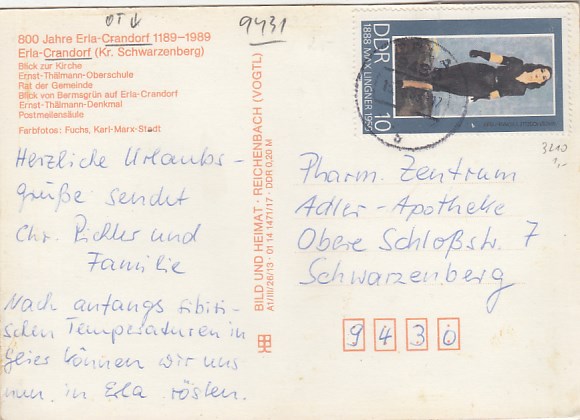 OT ↓
9431
800 Jahre Erla-Crandorf 1189–1989
Erla-Crandorf (Kr. Schwarzenberg)
Blick zur Kirche
Ernst-Thälmann-Oberschule
Rat der Gemeinde
Blick von Bermsgrün auf Erla-Crandorf
Ernst-Thälmann-Denkmal
Postmeilensäule
Farbfotos: Fuchs, Karl-Marx-Stadt
Herzliche Urlaubs-
grüße sendet
Chr. Pichler und
Familie
Nach anfangs sibiri-
schen Temperaturen in
können wir uns
nun in Erla rösten.
BILD UND HEIMAT · REICHENBACH (VOGTL)
A1/III/26/13 · 01 14 1471/17 · DDR 0,20 M
DDR
1888 MAX LINGNER 1959
10
3210
1,-
Pharm. Zentrum
Adler-Apotheke
Obere Schloßstr. 7
Schwarzenberg
9430